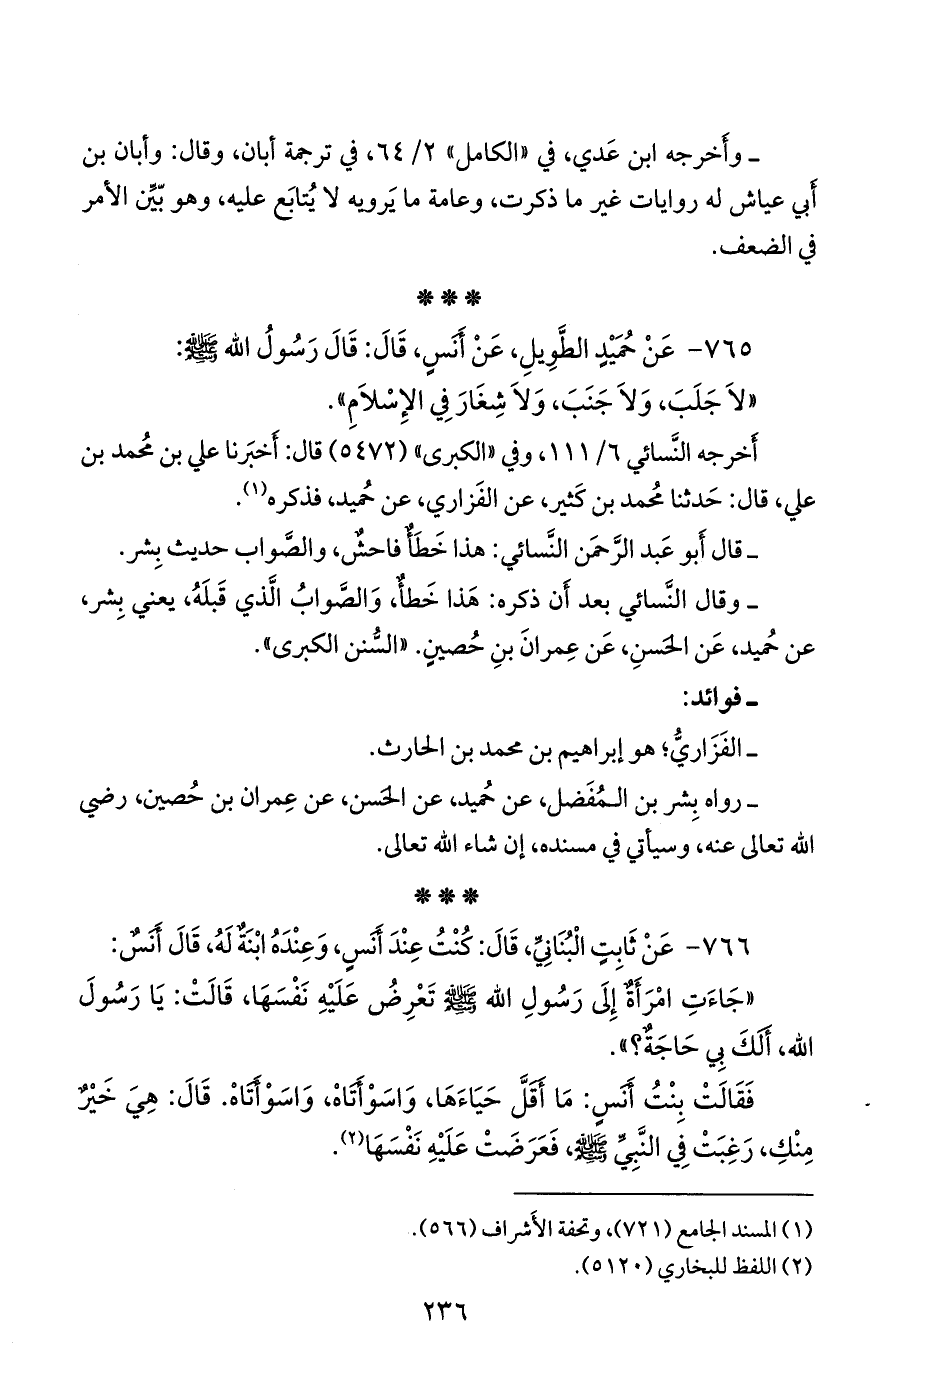 ـ وأَخرجه ابن عَدي، في «الكامل» ٢/ ٦٤، في ترجمة أبان، وقال: وأبان بن
أَبي عياش له روايات غير ما ذكرت، وعامة ما يَرويه لا يُتابَع عليه، وهو بيِّن الأمر
في الضعف.
* * *
٧٦٥- عَنْ حُمَيْدٍ الطَّوِيلِ، عَنْ أَنَسٍ، قَالَ: قَالَ رَسُولُ الله ﷺ:
«لاَ جَلَبَ، وَلاَ جَنَبَ، وَلاَ شِغَارَ فِي الإِسْلاَمِ».
أَخرجه النَّسائي ٦/ ١١١، وفي «الكبرى» (٥٤٧٢) قال: أَخبَرنا علي بن مُحمد بن
علي، قال: حَدثنا مُحمد بن كَثير، عن الفَزاري، عن حُميد، فذكره(١).
ـ قال أَبو عبد الرَّحمَن النَّسائي: هذا خَطَأٌ فاحشٌ، والصَّواب حديث بِشر.
ـ وقال النَّسائي بعد أَن ذكره: هَذا خَطأٌ، وَالصَّوابُ الَّذي قَبلَهُ، يعني بِشر،
عن حُميد، عَن الحَسنِ، عَن عِمرانَ بنِ حُصينٍ. «السُّنن الكبرى».
ـ فوائد:
ـ الفَزَاريُّ؛ هو إبراهيم بن محمد بن الحارث.
ـ رواه بِشر بن المُفَضل، عن حُميد، عن الحَسن، عن عِمران بن حُصين، رضي
الله تعالى عنه، وسيأتي في مسنده، إن شاء الله تعالى.
* * *
٧٦٦- عَنْ ثَابِتٍ الْبُنَانِيِّ، قَالَ: كُنْتُ عِنْدَ أَنَسٍ، وَعِنْدَهُ ابْنَةٌ لَهُ، قَالَ أَنَسٌ:
«جَاءَتِ امْرَأَةٌ إِلَى رَسُولِ الله ﷺ تَعْرِضُ عَلَيْهِ نَفْسَهَا، قَالَتْ: يَا رَسُولَ
الله، أَلَكَ بِي حَاجَةٌ؟».
فَقَالَتْ بِنْتُ أَنَسٍ: مَا أَقَلَّ حَيَاءَهَا، وَاسَوْأَتَاهْ، وَاسَوْأَتَاهْ. قَالَ: هِيَ خَيْرٌ
مِنْكِ، رَغِبَتْ فِي النَّبِيِّ ﷺ، فَعَرَضَتْ عَلَيْهِ نَفْسَهَا(٢).
(١) المسند الجامع (٧٢١)، وتحفة الأَشراف (٥٦٦).
(٢) اللفظ للبخاري (٥١٢٠).
٢٣٦